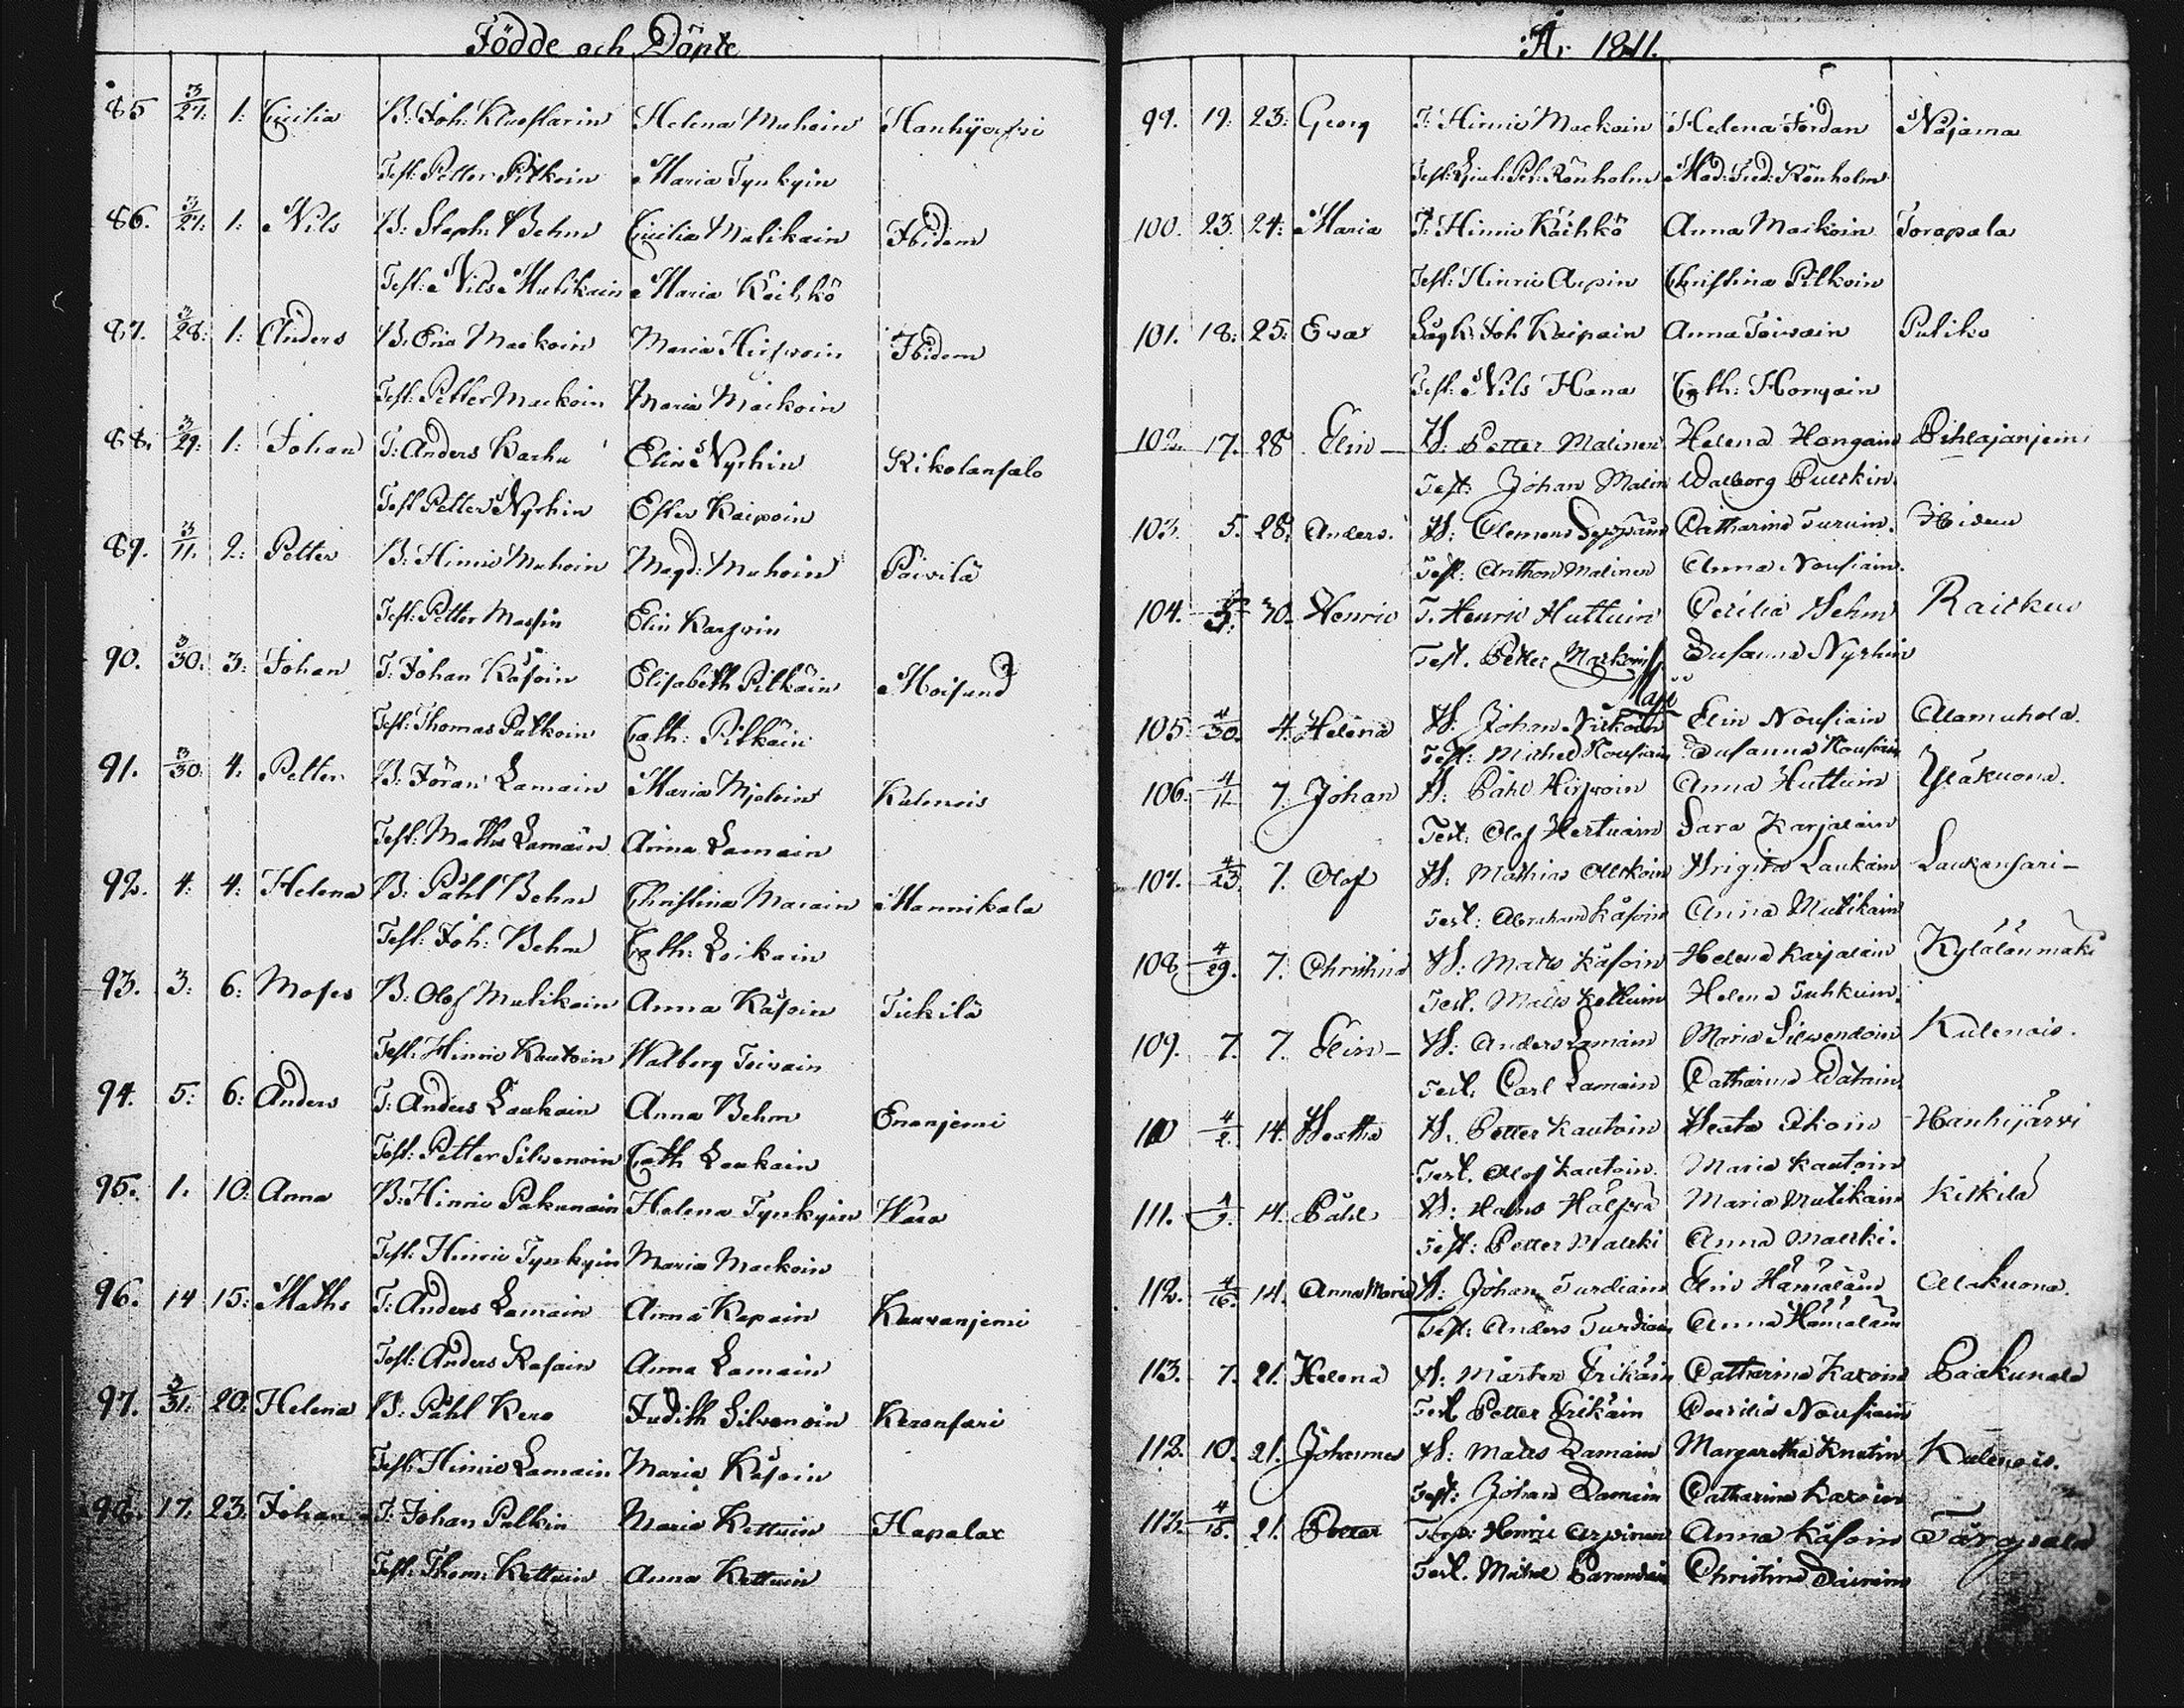 Födde och Döpte
85 3/27: 1: Cicilia B: Joh: Helena Muhoin
Test: Petter Pitkoin Maria Tynkyin
86. 3/27: 1: Nils B: Steph: Behm Cicilia Mulikain Ibidem
Test: Nils Mulikain Maria Käihkö
87. 3/28: 1: Anders B: Eric Mackoin Maria Hirwoin Ibidem
Test: Petter Mackoin Maria Mackoin
88. 3/29: 1: Johan T: Anders Karhu Elin Nyrhin Kikolansalo
Test Petter Nyrhin Ester Kaipain
89. 3/11. 2: Petter B: Hinric Muhoin Magd: Muhoin Päivilä
Test: Petter Elin
90. 3/30. 3: Johan T: Johan Käsoin Elisabeth Pitkäin Moisund
Test: Thomas Cath: Pitkäin
91. 3/30: 4. Petter B: Jöran Lamain Maria Kulenois
Test: Maths Lamain Anna Lamain
92. 4: 4: Helena B: Påhl Behm Christina Mannikala
Test: Joh: Behm Cath: Loikain
93. 3: 6: Moses B: Olof Mulikain Anna Käsoin Tiikilä
Test: Hinric Kautoin Walborg Toivain
94. 5: 6: Anders T: Anders Laukain Anna Behm Enonjemi
Test: Petter Silvenoin Cath Laukain
95. 1. 10: Anna B: Hinric Pakunain Helena Tynkyin
Test: Hinric Tynkyin Maria Mackoin
96. 14 15: Maths T: Anders Lamain Anna Kapain
Test: Anders Anna Lamain
97. 3/31. 20: Helena B: Påhl Kero Judith Silvenoin Keronsari
Test: Hinric Lamain Maria Käsoin
98. 17. 23: Johan T: Johan Pulkin Maria Kettuin Hapalax
Test: Thom: Kettuin Anna Kettuin
År 1811.
99. 19: 23: Georg T: Hinric Mackoin Helena Jordan Nåjama
Test: Rönholm Mad: Fred: Rönholm
100. 23. 24: Maria T: Hinric Käihkö Anna Mackoin Torapala
Test: Hinric Arpin Christina Pitkoin
101. 18: 25: Ewa Joh Kaipain Anna Toivain Puliko
Test: Nils Hana Cath: Hongain
102. 17. 28 Elin – B: Petter Malinen Helena Hongain
Test: Johan Malin Walborg Pulkin
103. 5. 28. Anders. B: Clemens Catharina Turuin. Ibidem
Test: Anthon Malinen Anna Nousiain.
104. 30. Henric T. Henric Huttuin Cecilia Behm Raickus
Test. Petter Markoin Susanna Nyrhin
Maji
105 4/30. 4. Helena B: Johan Elin Nousiain Alamuhola.
Test: Michel Nousiain Susanna Nousiain
106. 4/11. 7. Johan B: Påhl Hirwoin Anna Huttuin Yläkuona.
Test: Olof Sara Karjalain
107. 4/23. 7. Olof B: Mathias Brigita Laukain Laukansari –
Test: Abraham Käsoin Anna Mulikain
108. 4/29. 7. Christina B: Matts Käsoin Helena Karjalain Kylälänmäki
Test. Matts Kettuin Helena Tuhkuin.
109. 7. 7. Elin – B: Anders Lamain Maria Silvendoin Kulenois.
Test. Carl Lamain Catharina Watain
110 4/2. 14. Beatha B. Petter Kautoin Beata Ikoin Hanhijärvi
Test. Olof Kautoin. Maria Kautoin
111. 14. Påhl B: Hans Maria Mulikain Kitkilä
Test: Petter Malski Anna Malski.
112. 4/16. 14. Anna Maria B: Johan Turdiain Elin Hämäläin Alakuona.
Test: Anders Turdiain Anna Hämäläin
113. 7. 21. Helena B: Mårten Erikäin Catharina Kaxoin Paakunala
Test Petter Erikäin Cecilia Nousiain
112. 10. 21. Johannes B: Matts Lamain Margaretha Kulenois.
Test: Johan Lamain Catharina Kaxoin
113. 4/15. 21. Petter Henric Arpinen Anna Käsoin
Test. Michel Christina